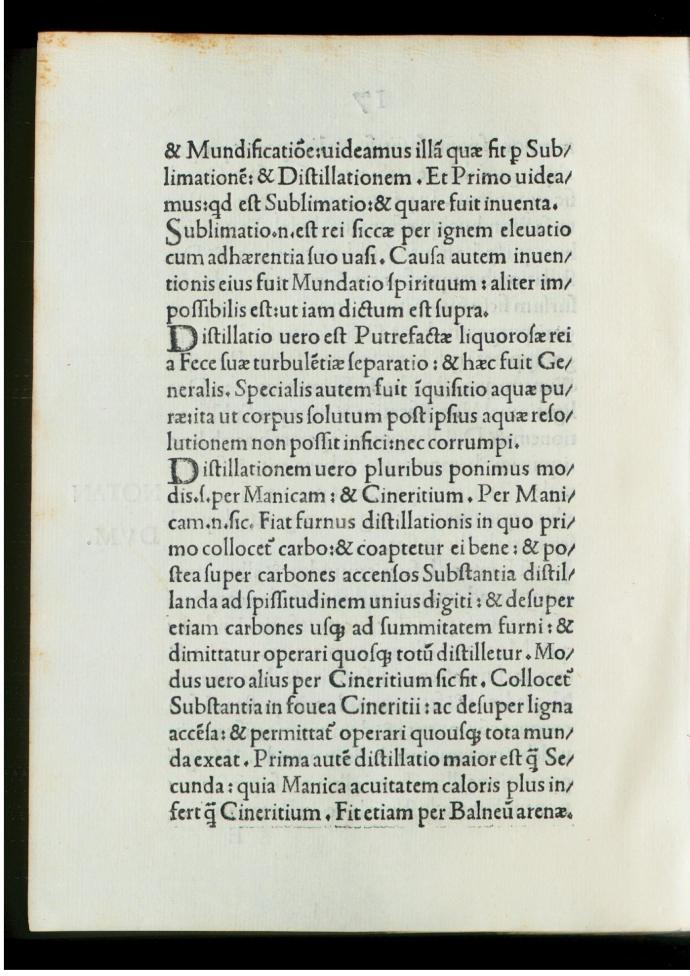 & Mundificatiõe:uideamus illã quæ fit ꝑ Sub/
limationẽ: & Diſtillationem . Et Primo uidea/
mus:qd eſt Sublimatio:& quare fuit inuenta.
Sublimatio.n.eſt rei ſiccæ per ignem eleuatio
cum adhærentia ſuo uaſi. Cauſa autem inuen/
tionis eius fuit Mundatio ſpirituum : aliter im/
poſſibilis eſt:ut iam dictum eſt ſupra.
Diſtillatio uero eſt Putrefactæ liquoroſæ rei
a Fece ſuæ turbulẽtiæ ſeparatio : & hæc fuit Ge/
neralis. Specialis autem fuit ĩquiſitio aquæ pu/
ræ:ita ut corpus ſolutum poſt ipſius aquæ reſo/
lutionem non poſſit infici:nec corrumpi.
Diſtillationem uero pluribus ponimus mo/
dis.ſ.per Manicam : & Cineritium . Per Mani/
cam.n.ſic. Fiat furnus diſtillationis in quo pri/
mo collocet̃ carbo:& coaptetur ei bene : & po/
ſtea ſuper carbones accenſos Subſtantia diſtil/
landa ad ſpiſſitudinem unius digiti : & deſuper
etiam carbones uſqꝫ ad ſummitatem furni : &
dimittatur operari quoſqꝫ totũ diſtilletur . Mo/
dus uero alius per Cineritium ſic fit . Collocet̃
Subſtantia in fouea Cineritii : ac deſuper ligna
accẽſa : & permittat̃ operari quouſqꝫ tota mun/
da exeat . Prima autẽ diſtillatio maior eſt q̃ Se/
cunda : quia Manica acuitatem caloris plus in/
fert q̃ Cineritium . Fit etiam per Balneũ arenæ.